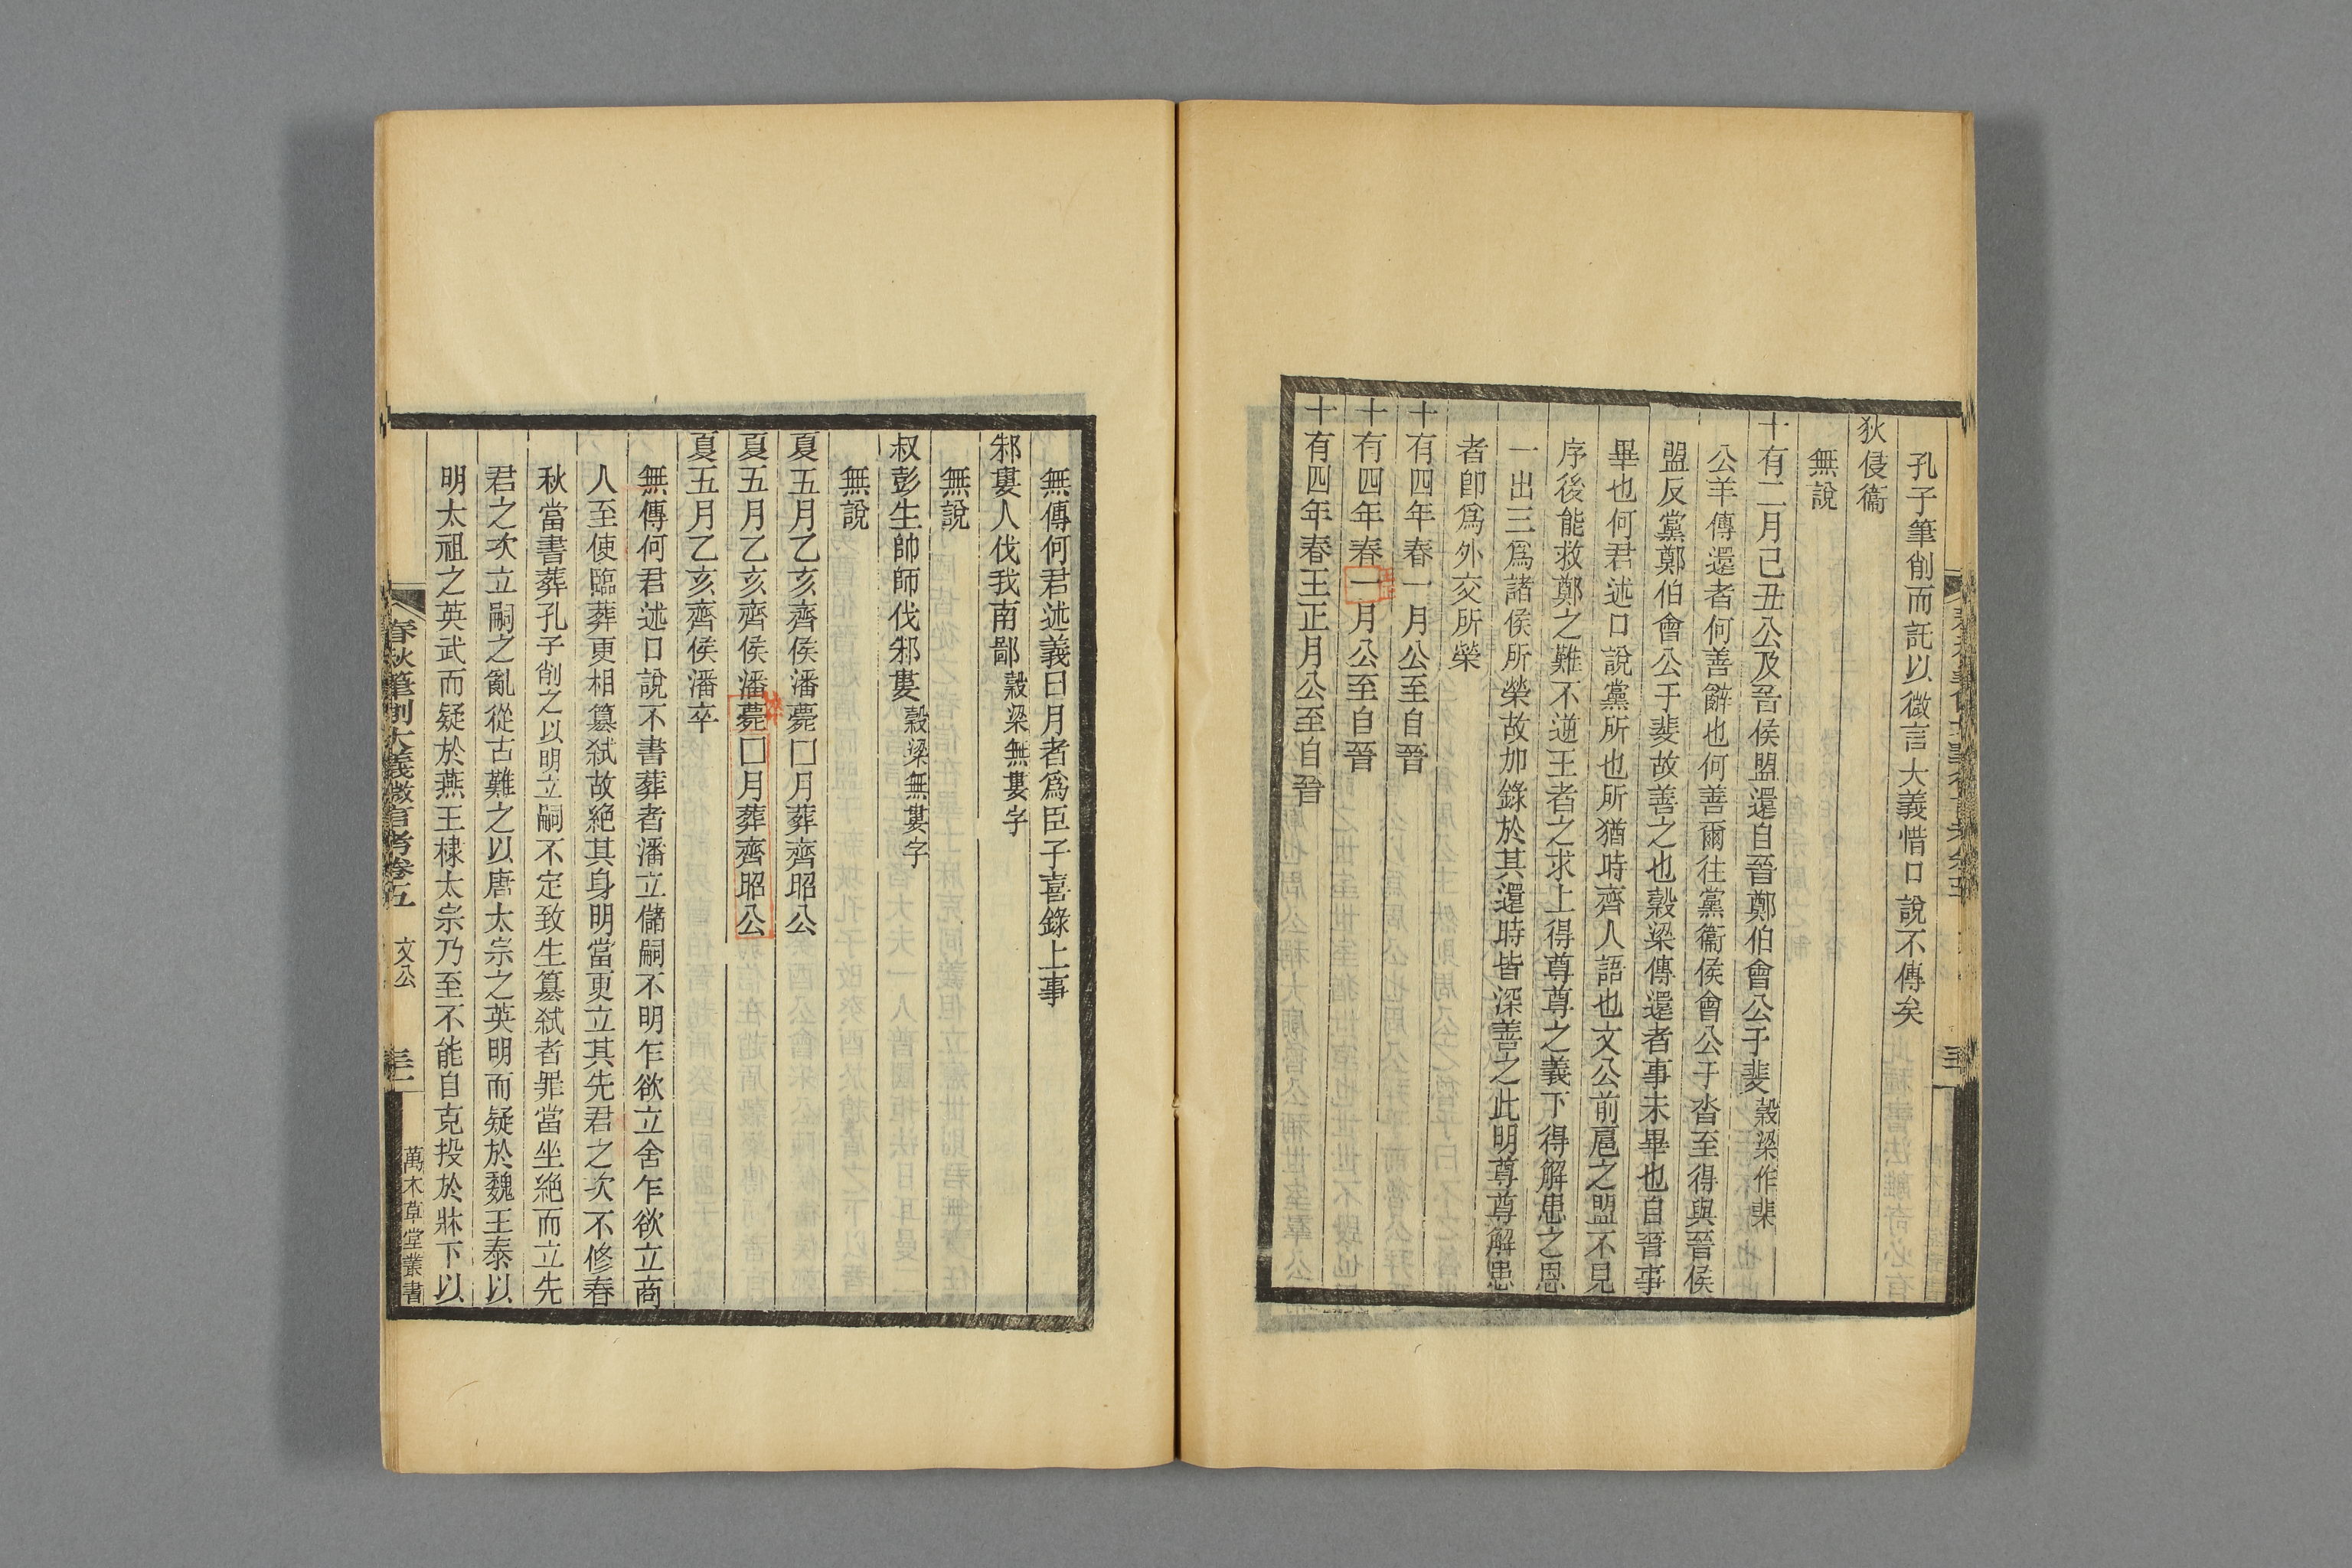 孔子筆削而託以微言大義惜口說不傳矣
狄侵衞
無說
十有二月己丑公及晉侯盟還自晉鄭伯會公于斐穀梁作棐
公羊傳還者何善辭也何善爾往黨衞侯會公于沓至得與晉侯
盟反黨鄭伯會公于斐故善之也穀梁傳還者事未畢也自晉事
畢也何君述口說黨所也所猶時齊人語也文公前扈之盟不見
序後能救鄭之難不逆王者之求上得尊尊之義下得解患之恩
一出三爲諸侯所榮故加錄於其還時皆深善之此明尊尊解患
者卽爲外交所榮
十有四年春一月公至自晉
十有四年春一月公至自晉
十有四年春王正月公至自晉
無傳何君述義曰月者爲臣子喜錄上事
邾婁人伐我南鄙穀梁無婁字
無說
叔彭生帥師伐邾婁穀梁無婁字
無說
夏五月乙亥齊侯潘薨囗月葬齊昭公
夏五月乙亥齊侯潘薨囗月葬齊昭公
夏五月乙亥齊侯潘卒
無傳何君述口說不書葬者潘立儲嗣不明乍欲立舍乍欲立商
人至使臨葬更相簒弑故絕其身明當更立其先君之次不修春
秋當書葬孔子削之以明立嗣不定致生簒弑者罪當坐絕而立先
君之次立嗣之亂從古難之以唐太宗之英明而疑於魏王泰以
明太祖之英武而疑於燕王棣太宗乃至不能自克投於牀下以
春秋筆削大義微言考卷五 文公
萬木草堂叢書